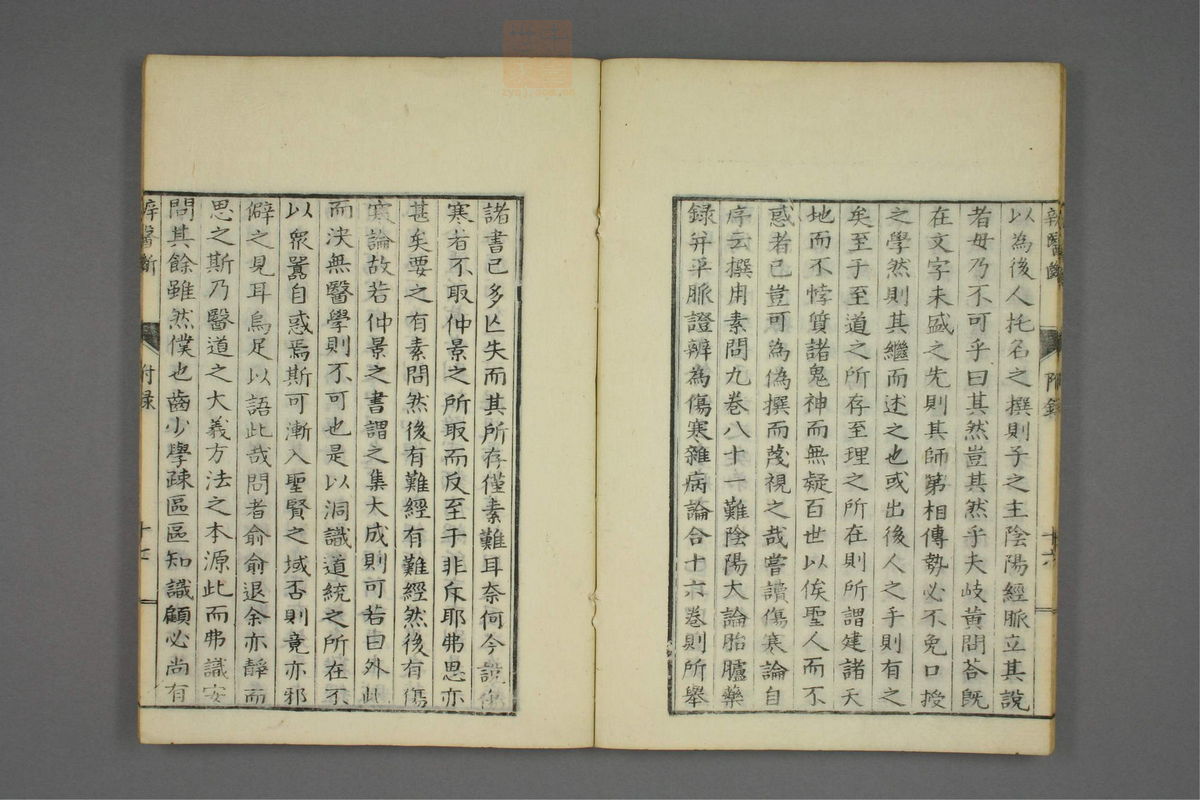 以為後人托名之撰則子之主陰陽經脈立其說
者毋乃不可乎曰其然豈其然乎夫岐黃問荅既
在文字未盛之先則其師第相傳勢必不免口授
之學然則其繼而述之也或出後人之手則有之
矣至于至道之所存至理之所在則所謂建諸天
地而不悖質諸鬼神而無疑百世以俟聖人而不
惑者已豈可為偽撰而蔑視之哉嘗讀傷寒論自
序云撰用素問九卷八十一難陰陽大論胎臚藥
錄并平脈證辨為傷寒雜病論合十六卷則所舉
諸書已多亾失而其所存僅素難耳奈何今說傷
寒者不取仲景之所取而反至于非斥耶弗思亦
甚矣要之有素問然後有難經有難經然後有傷
寒論故若仲景之書謂之集大成則可若曰外此
而決無醫學則不可也是以洞識道統之所在不
以衆嚣自惑焉斯可漸入聖賢之域否則竟亦邪
僻之見耳烏足以語此哉問者俞俞退余亦靜而
思之斯乃醫道之大義方法之本源此而弗識安
問其餘雖然僕也齒少學疎區區知識顧必尚有
醫斷
附录